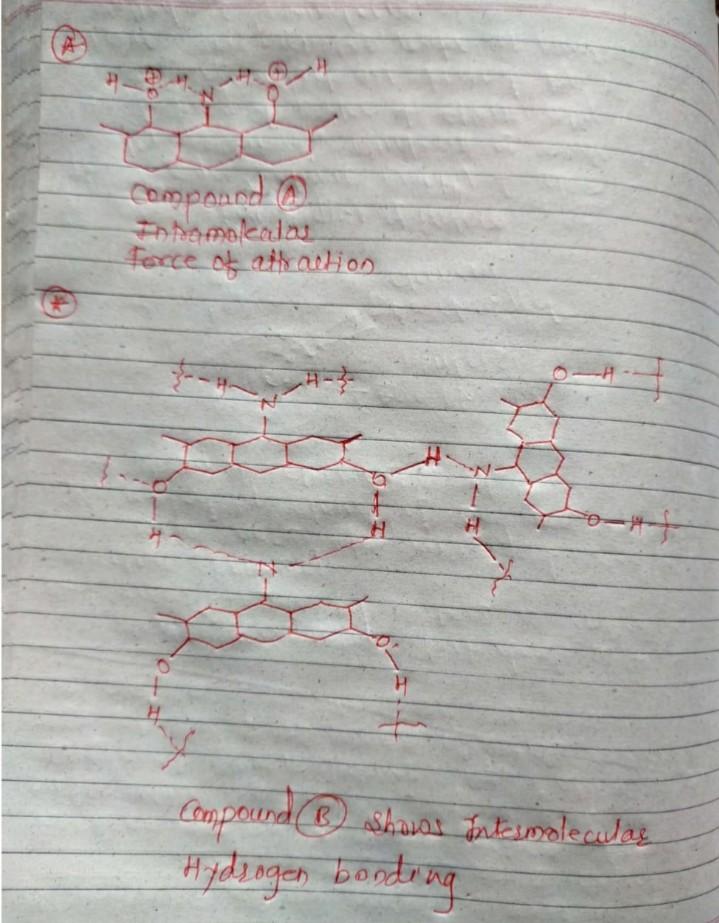 A
H O ⊕ H N H O ⊕ H
compound A
Intramolecular
Force of attraction
H N H
O H
O H N
O H
H H H
N
O H
O H
O H
compound B shows Intermolecular
Hydrogen bonding.